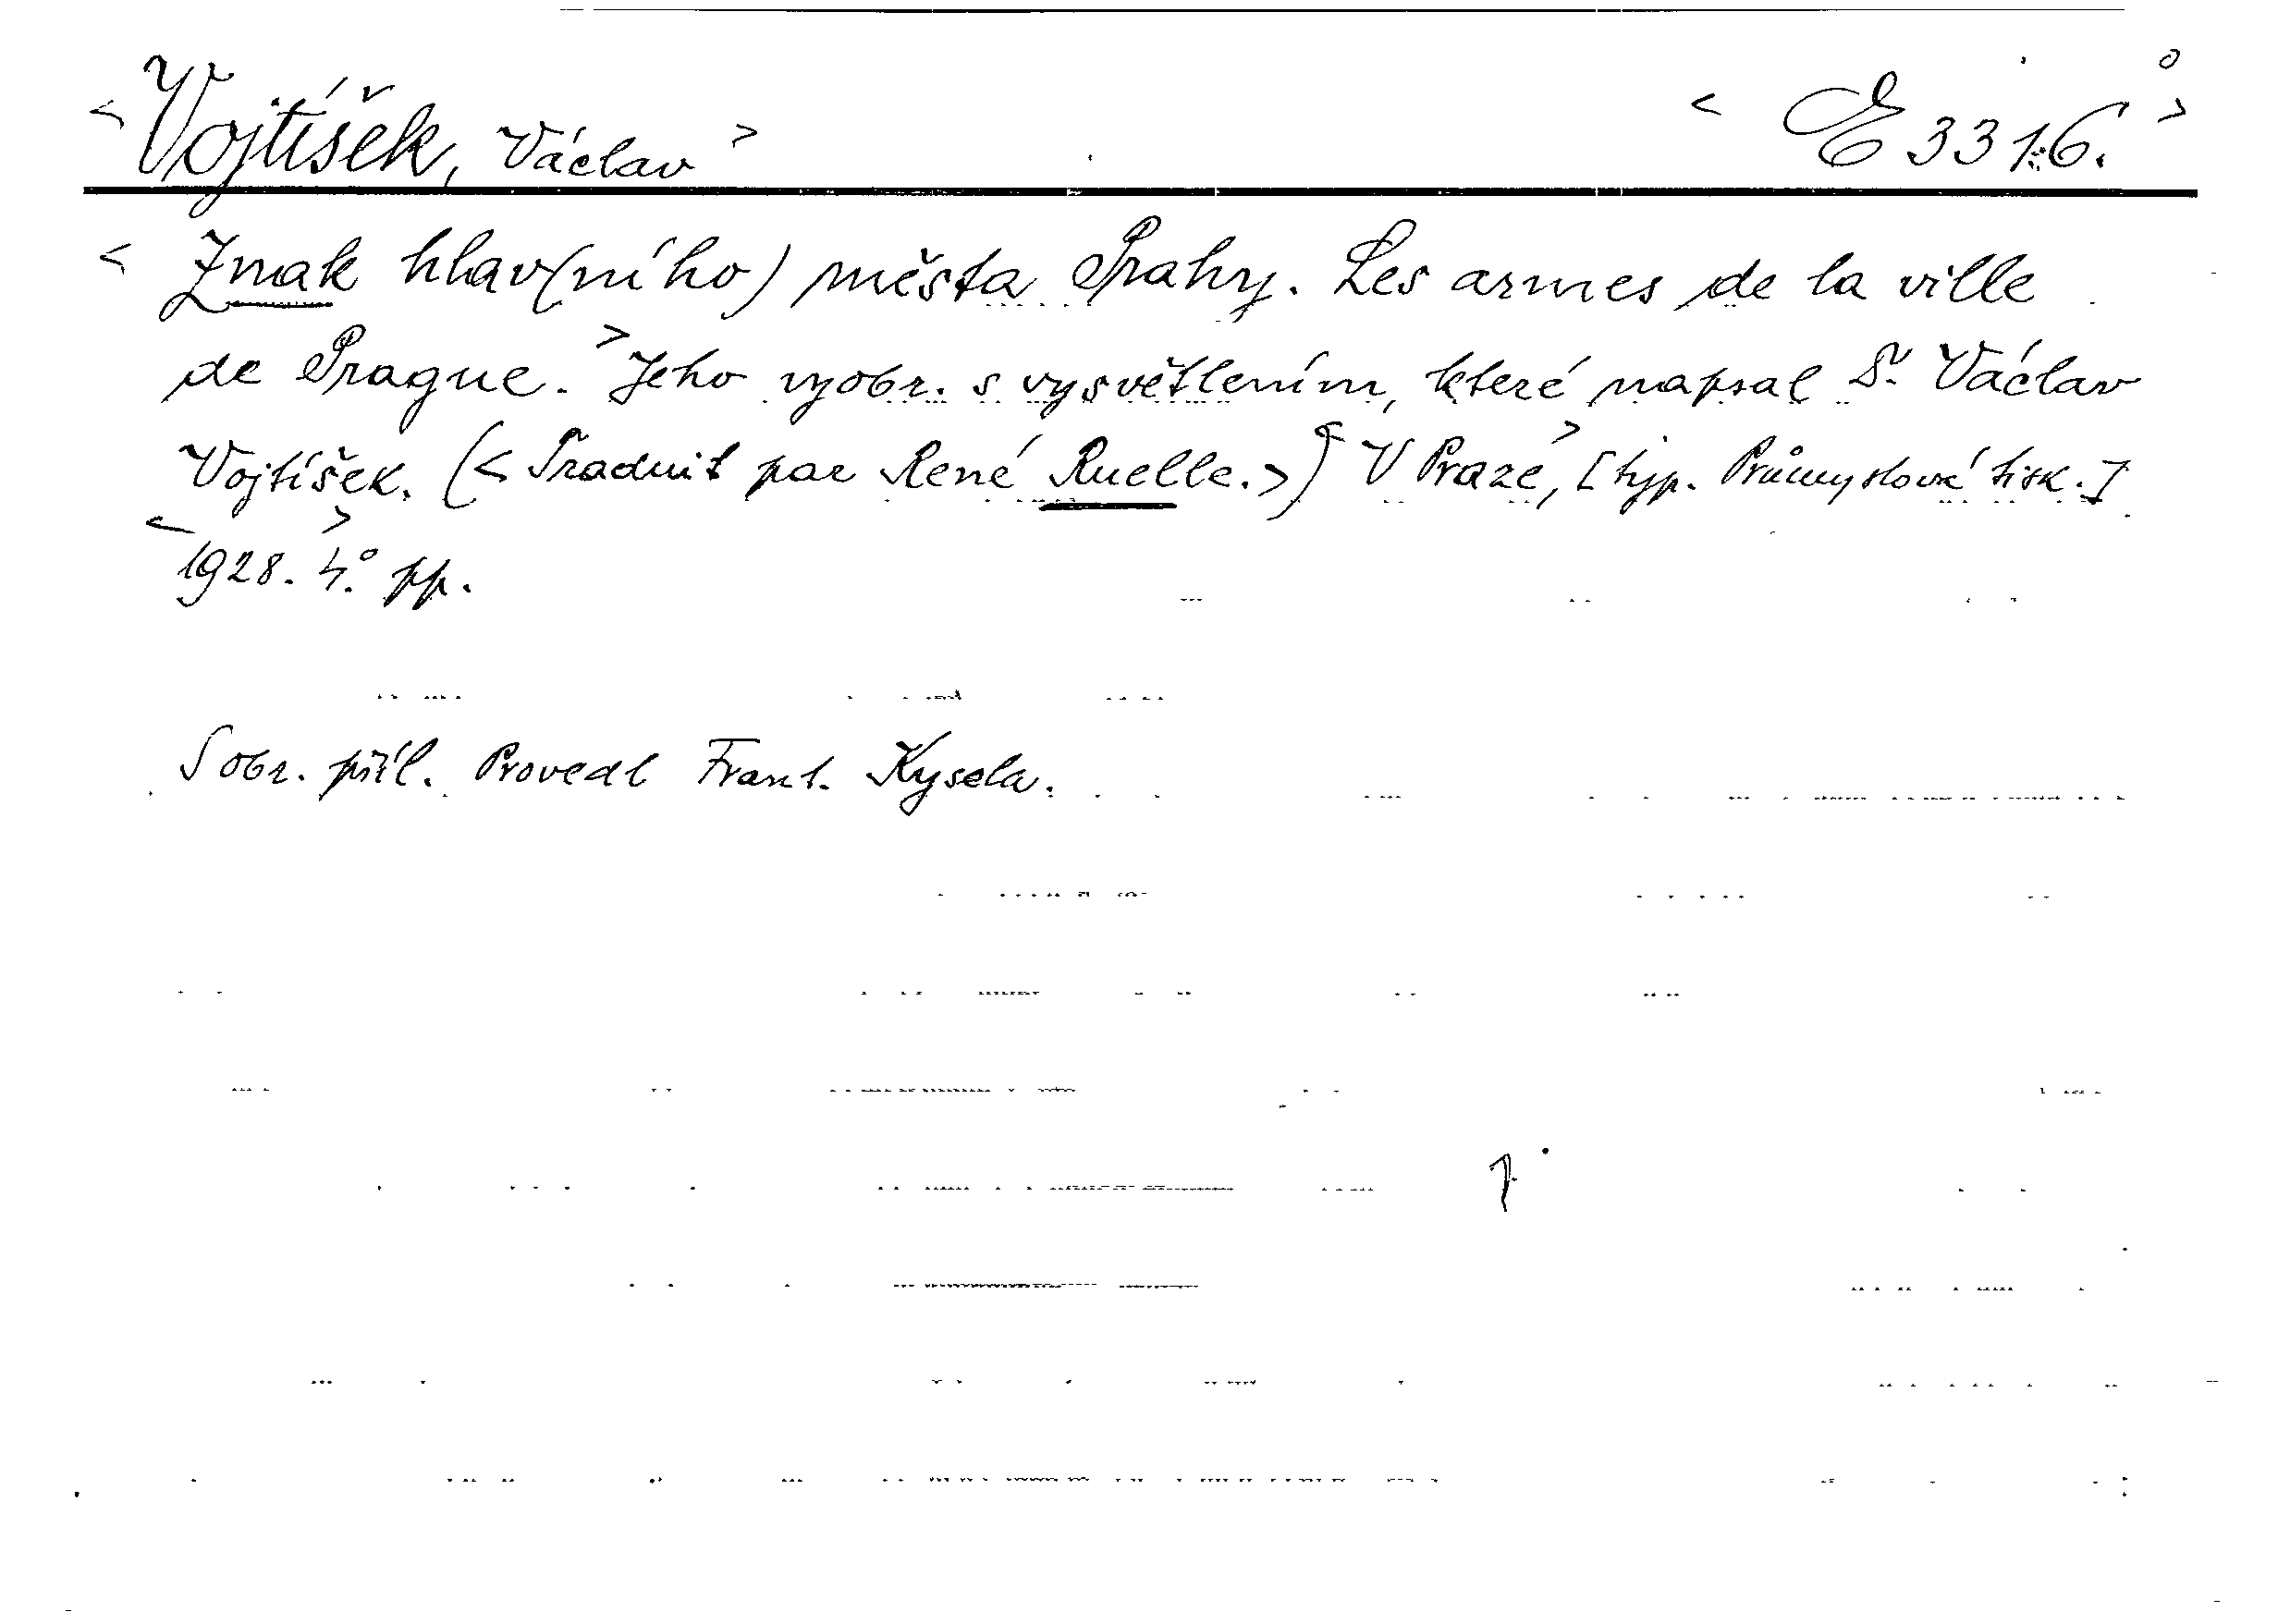 <Vojtíšek, Václav> <E 3316.>
<Znak hlav(ního) města Prahy. Les armes de la ville
de Prague.> Jeho vyobr. s vysvětlením, které napsal Dr. Václav
Vojtíšek. (<Traduit par René Ruelle.>) V Praze, [typ. Průmyslové tisk.]
<1928.> 4.° pp.
S obr. příl. Provedl Frant. Kysela.